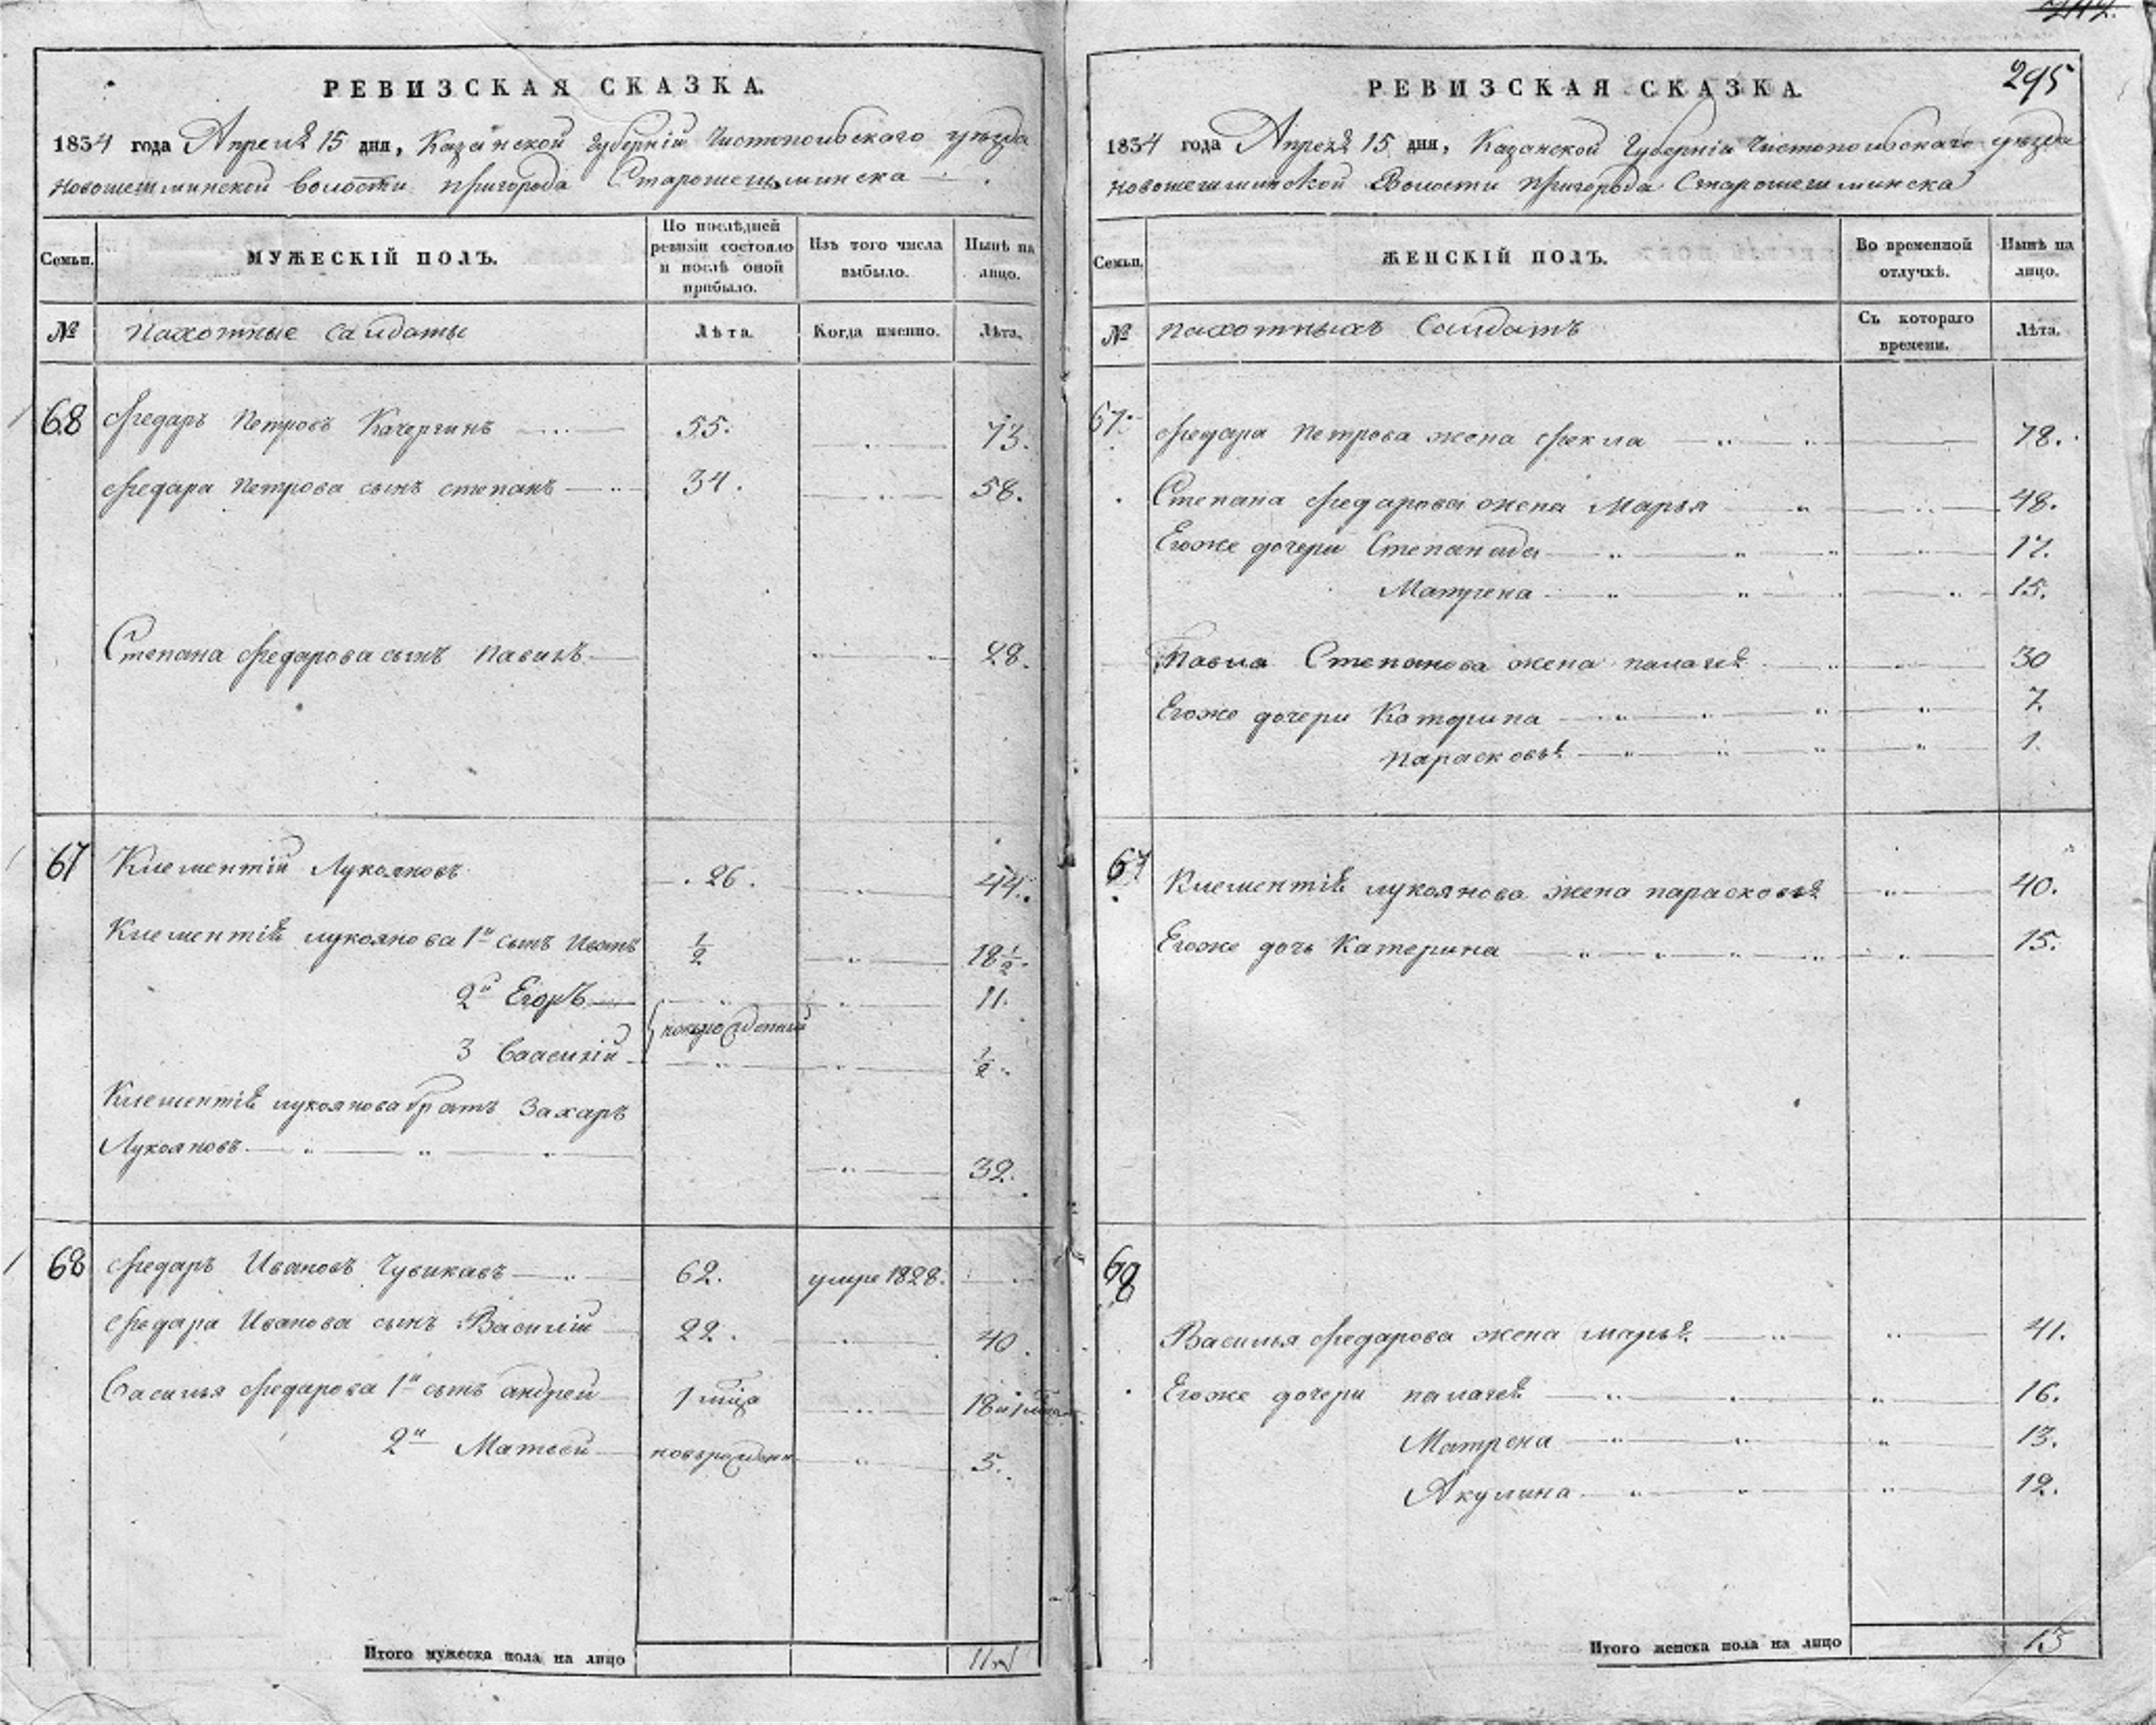 РЕВИЗСКАЯ СКАЗКА.
1834 года Апреля 15 дня, Казанской Губернии Чистопольского уезда
Новошешминской волости пригорода Старошешминска
Семьи.
МУЖЕСКІЙ ПОЛЪ.
По послѣдней ревизіи состояло и послѣ оной прибыло.
Изъ того числа выбыло.
Нынѣ на лицо.
№ Пахотные салдаты Лѣта. Когда именно. Лѣта.
68 Федаръ Петровъ Качергинъ 55. 73.
Федара Петрова сынъ степанъ 34. 58.
Степана Федарова сынъ Павилъ 28.
67 Клементій Лукояновъ 26. 44.
Клементія лукоянова 1й сынъ Иванъ 1/2 18 1/2.
2й Егоръ 11.
новорожденный
3 Василій 1/2.
Клементія лукоянова братъ Захаръ
Лукояновъ 32.
68 Федаръ Ивановъ Чувикавъ 62. умре 1828.
Федара Иванова сынъ Василій 22. 40.
Василья Федарова 1й сынъ андрей 1 мца 18 и 1 мца
2й Матвей новорожден. 5.
Итого мужеска пола на лицо 11
295
РЕВИЗСКАЯ СКАЗКА.
1834 года Апреля 15 дня, Казанской Губерніи Чистопольского уезда
Новошешминской Волости Пригорода Старошешминска
Семьи.
ЖЕНСКІЙ ПОЛЪ.
Во временной отлучкѣ.
Нынѣ на лицо.
№ пахотныхъ Салдатъ Съ котораго времени. Лѣта.
67. Федара Петрова жена Фекла 78.
Степана Федарова жена Марья 48.
Егоже дочери Степанида 17.
Матрена 15.
Павла Степанова жена палагея 30
Егоже дочери Катерина 7.
Парасковья 1.
67 Клементія лукоянова жена парасковья 40.
Егоже дочь Катерина 15.
68
Василья Федарова жена марья 41.
Егоже дочери палагея 16.
Матрена 13.
Акулина 12.
Итого женска пола на лицо 13